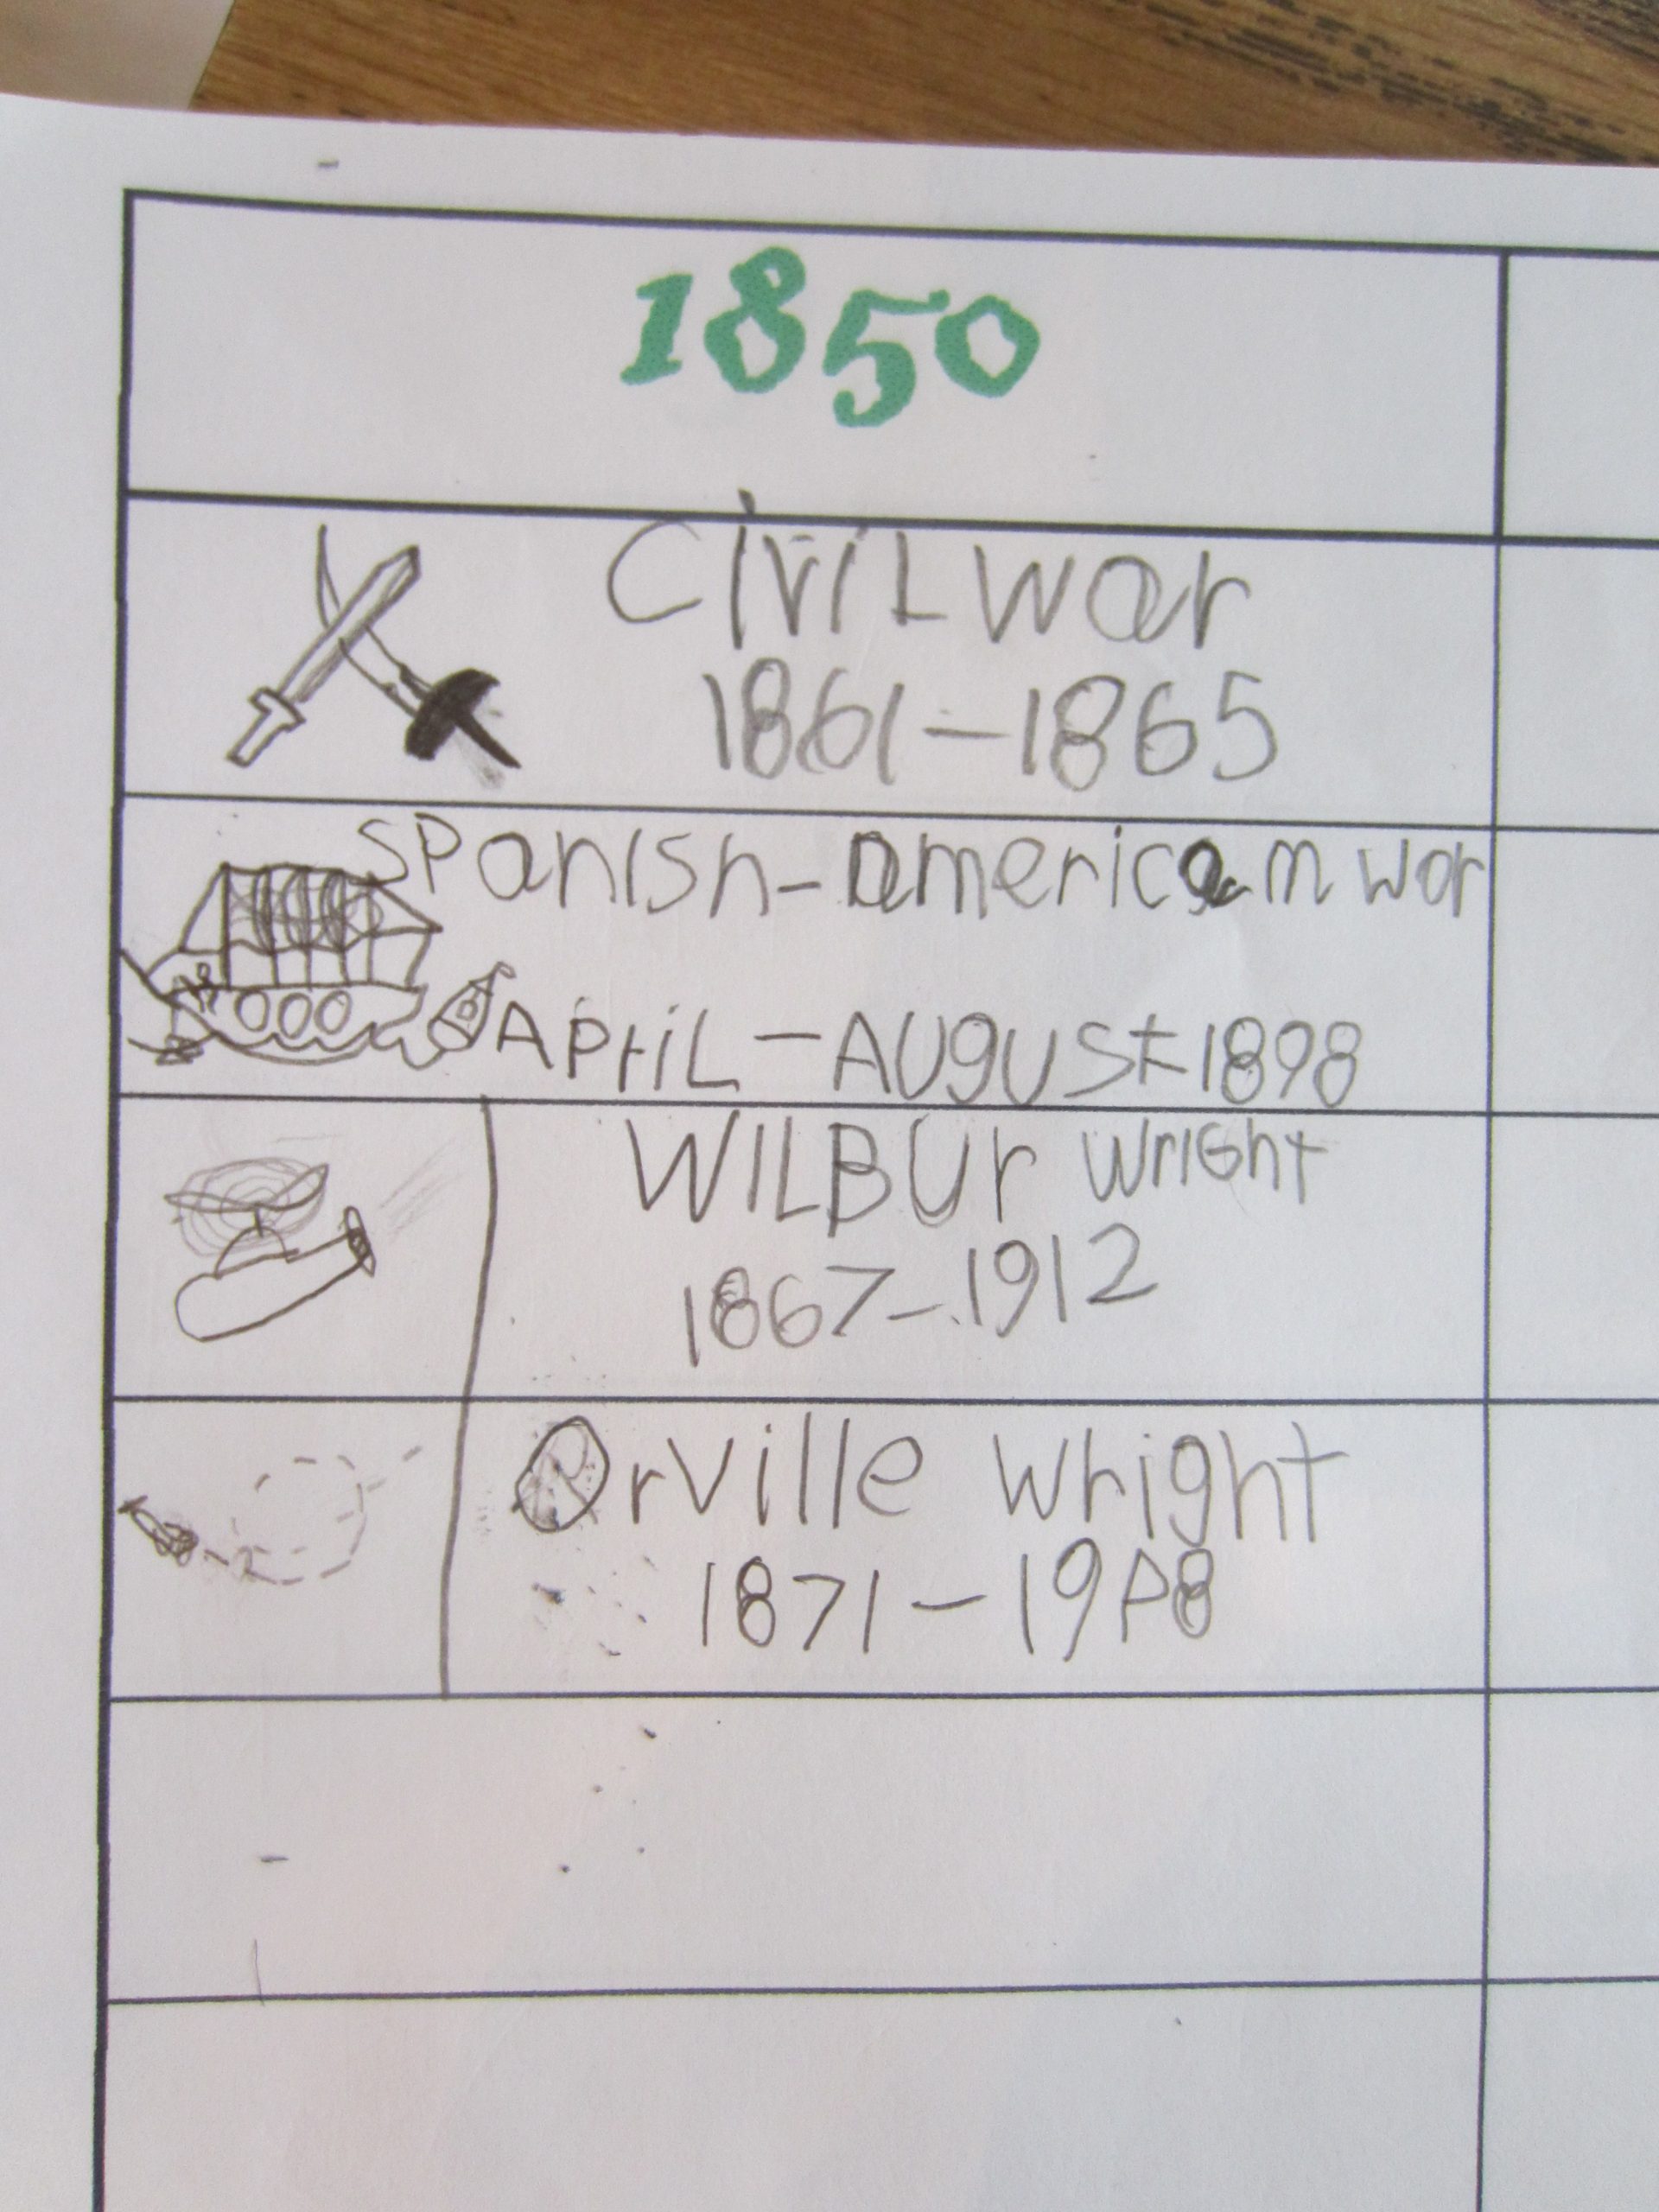 1850
CiviL war
1861-1865
SPanish-american war
APriL-AUgUSt 1898
WILBUr WriGht
1867-1912
Orville Wright
1871-1948